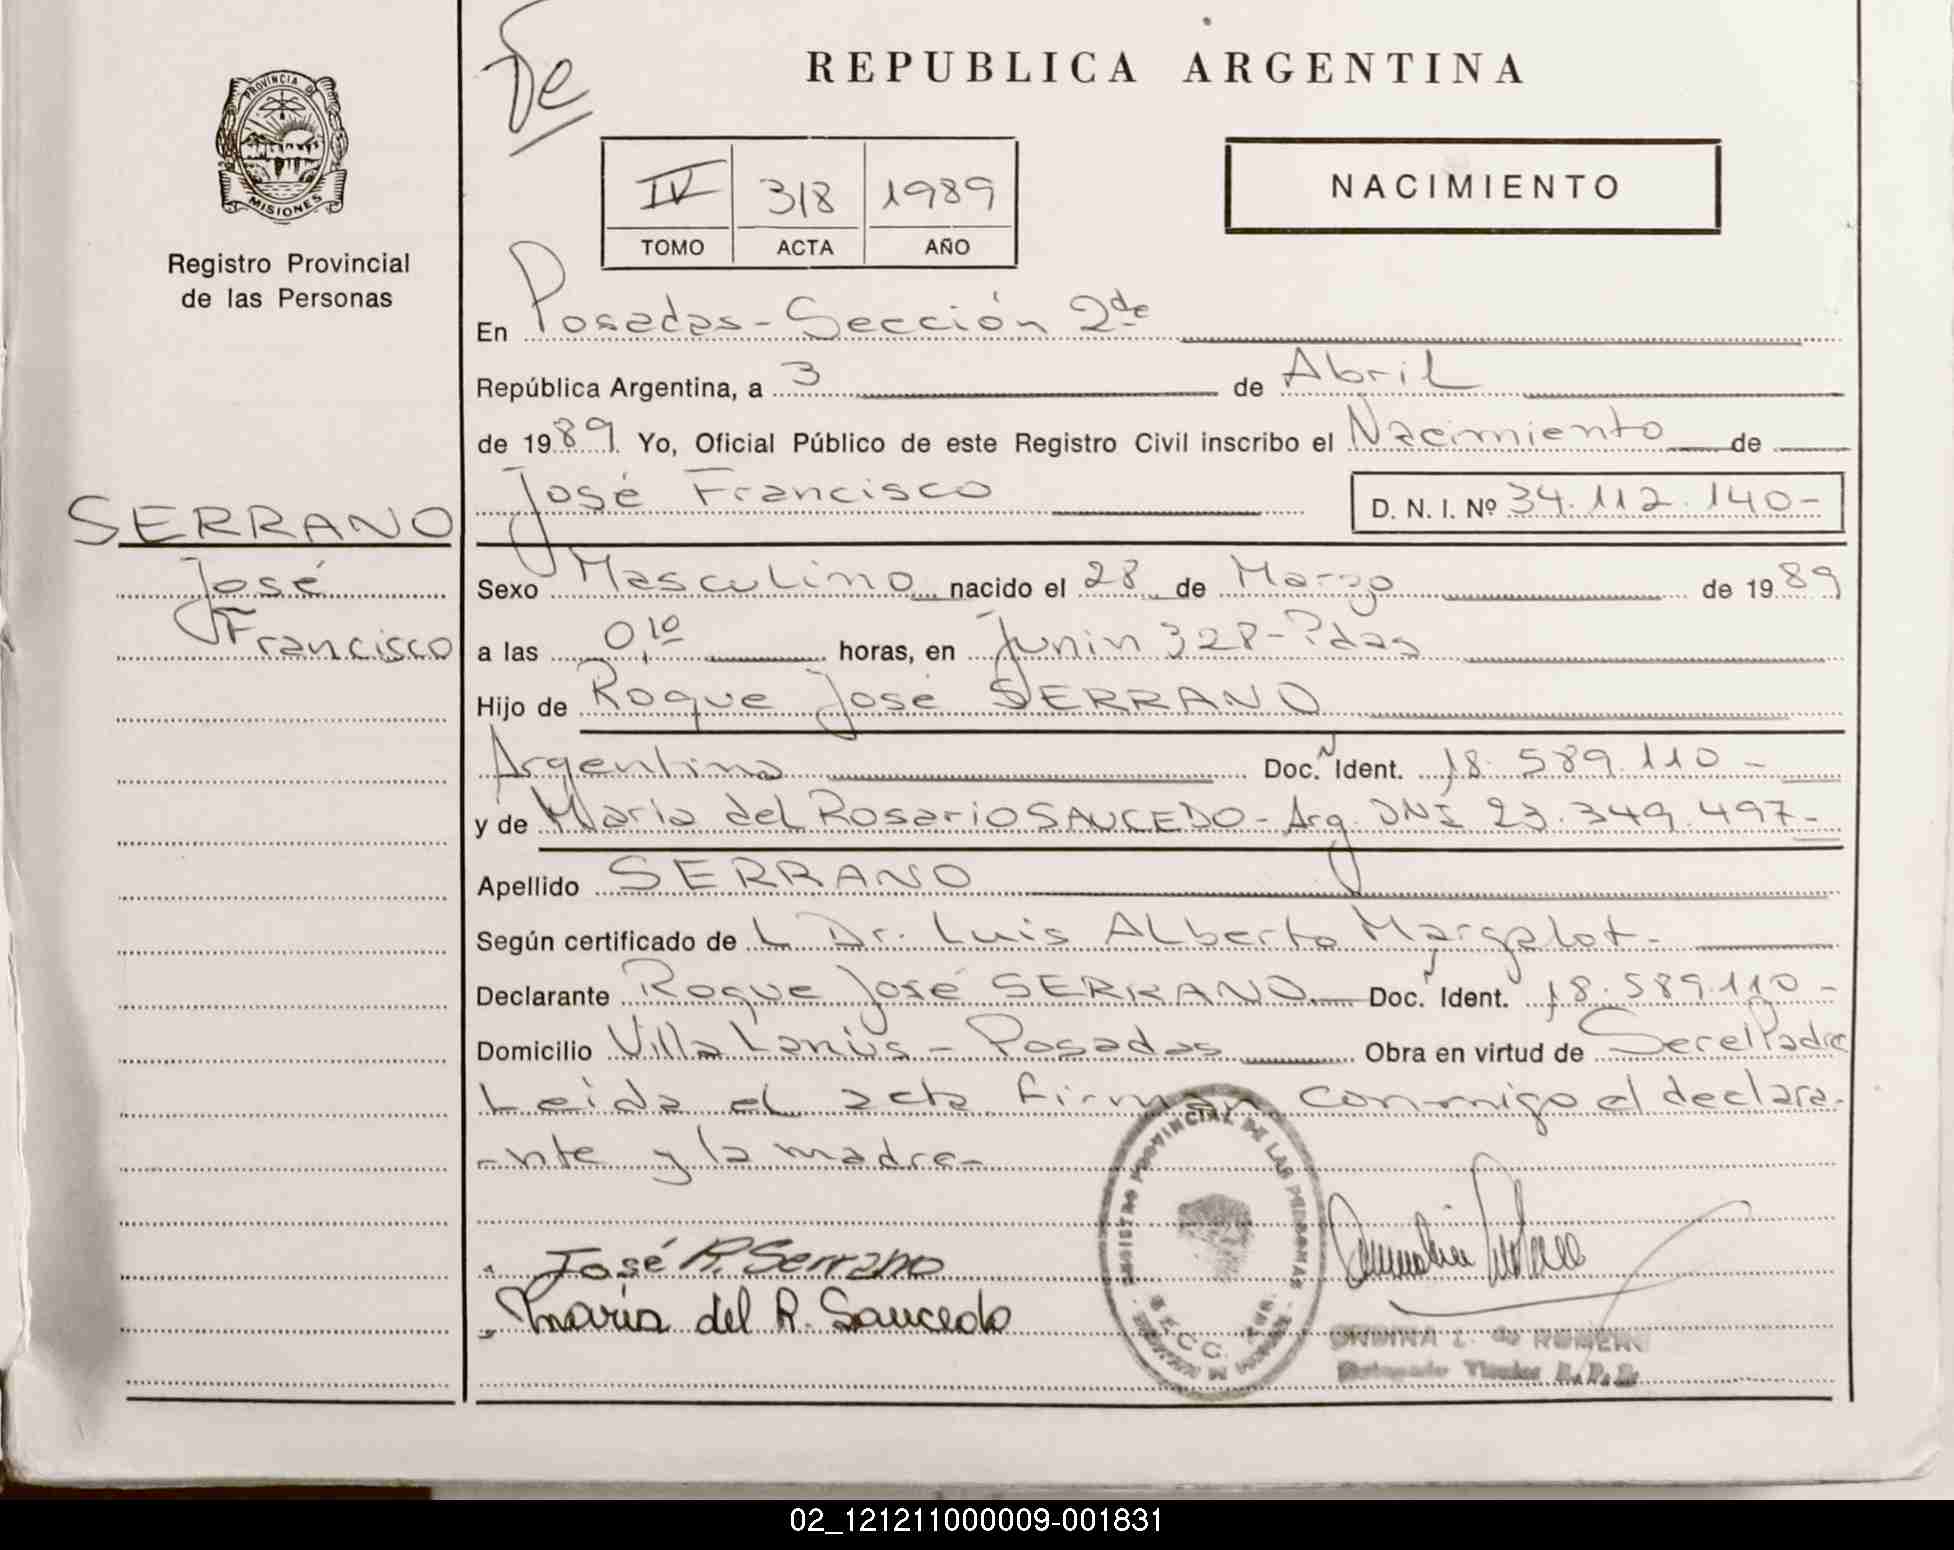 De
REPUBLICA ARGENTINA
PROVINCIA DE
MISIONES
Registro Provincial
de las Personas
IV 318 1989
TOMO ACTA AÑO
NACIMIENTO
En Posadas - Sección 2da
República Argentina, a 3 de Abril
de 1989. Yo, Oficial Público de este Registro Civil inscribo el Nacimiento de
José Francisco D. N. I. Nº 34.112.140-
SERRANO
José
Francisco
Sexo Masculino nacido el 28 de Marzo de 1989
a las 0,10 horas, en Junin 328 - Pdas
Hijo de Roque José SERRANO
Argentino Doc. Ident. 18.589.110-
y de María del Rosario SAUCEDO - Arg. DNI 23.349.497-
Apellido SERRANO
Según certificado de L Dr. Luis Alberto Margalot.
Declarante Roque José SERRANO Doc. Ident. 18.589.110-
Domicilio Villa Lanús - Posadas Obra en virtud de Ser el Padre
Leida el acta firman conmigo el declara-
-nte y la madre-
REGISTRO PROVINCIAL DE LAS PERSONAS
José R. Serrano
María del R. Saucedo
02_121211000009-001831